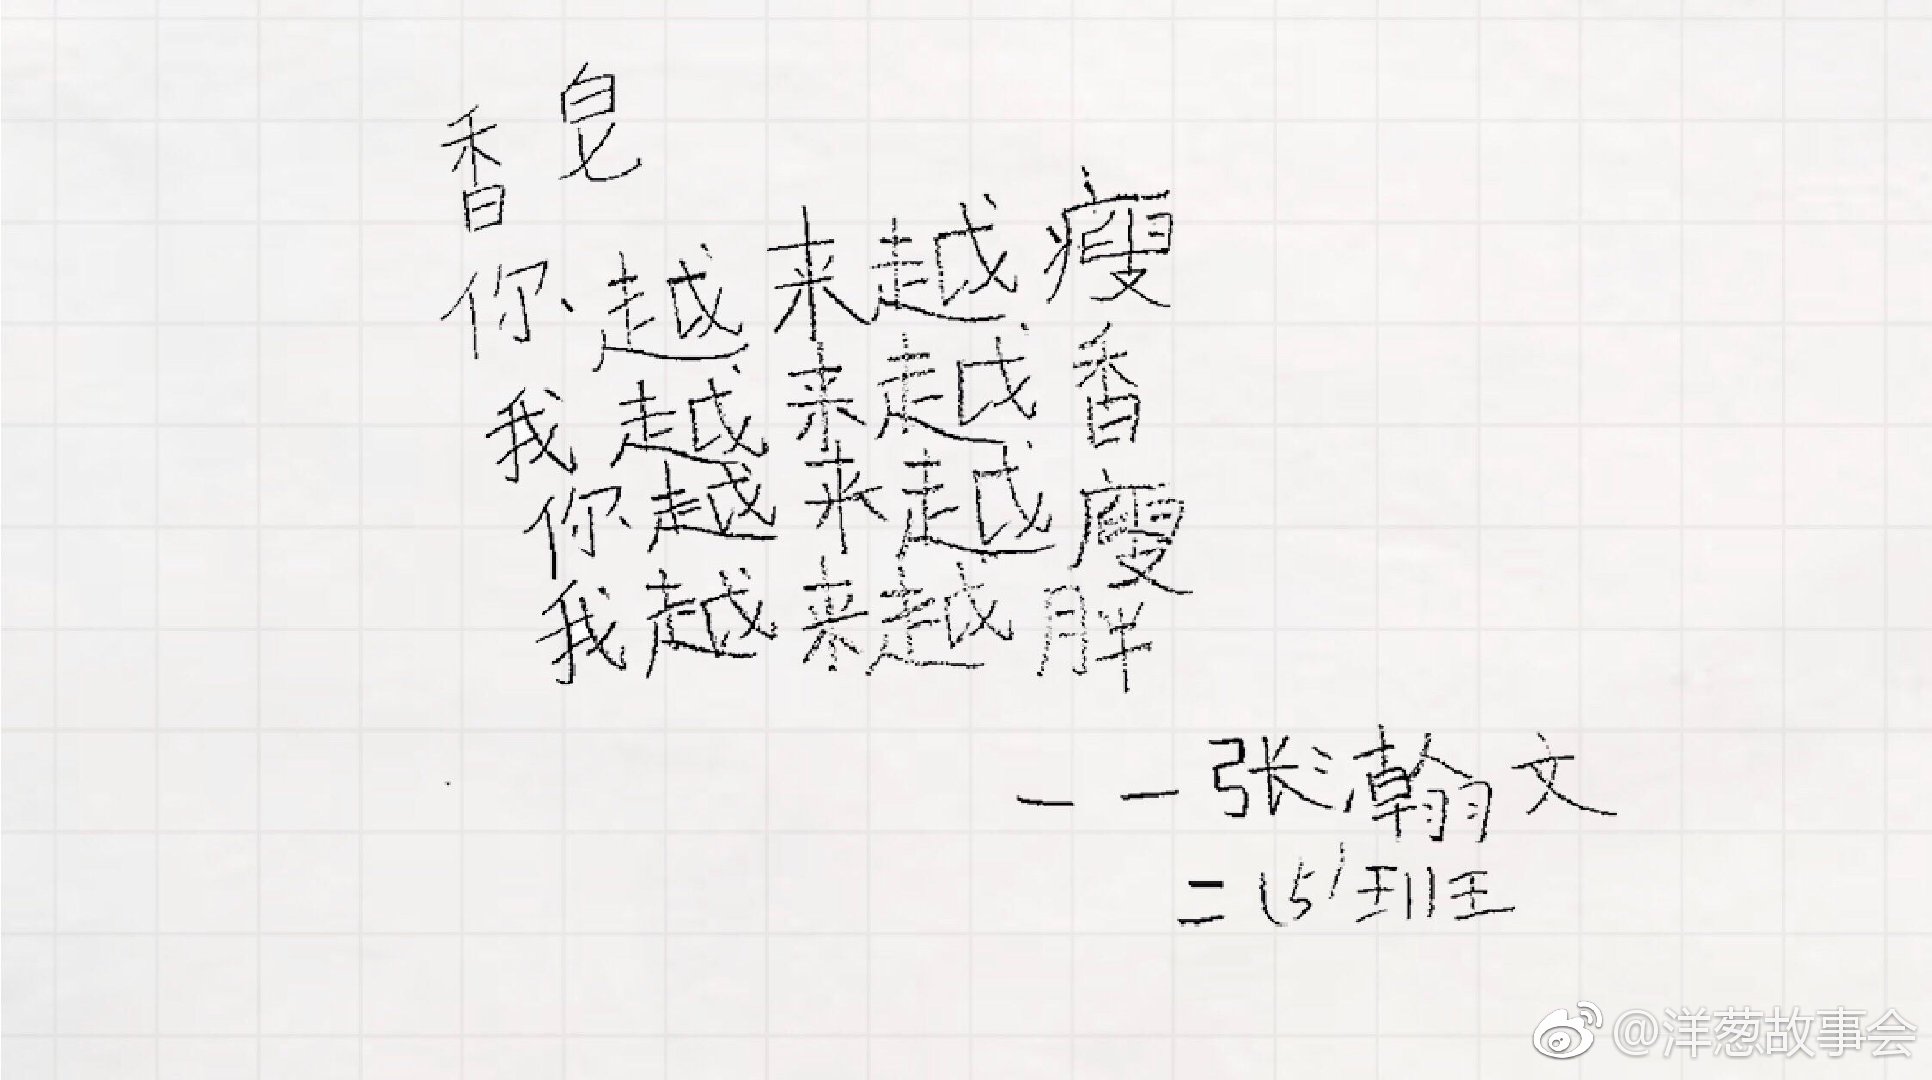 香皂
你越来越瘦
我越来越香
你越来越瘦
我越来越胖
——张瀚文
二(5)班
@洋葱故事会